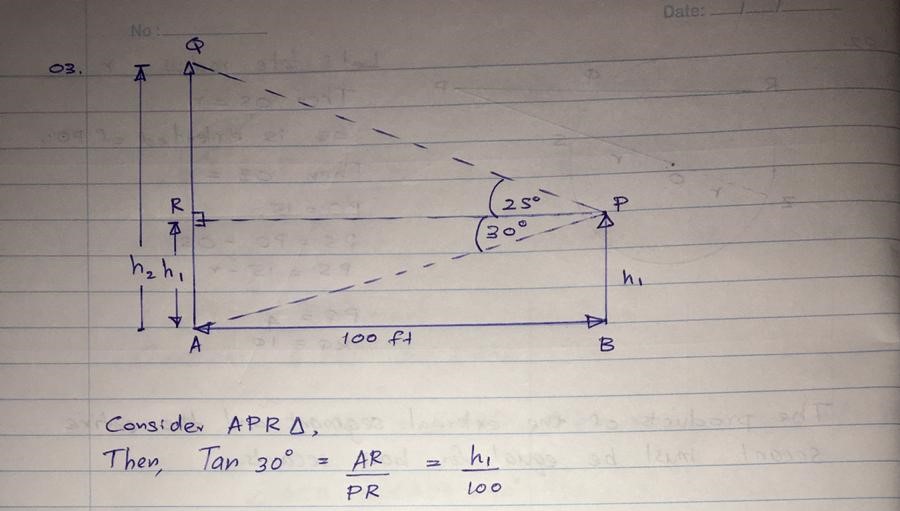 Date: __/__/__
No: ________
03.
Q
R
25°
P
30°
h2 h1
h1
A
100 ft
B
Consider APR Δ,
Then, Tan 30° = AR/PR = h1/100